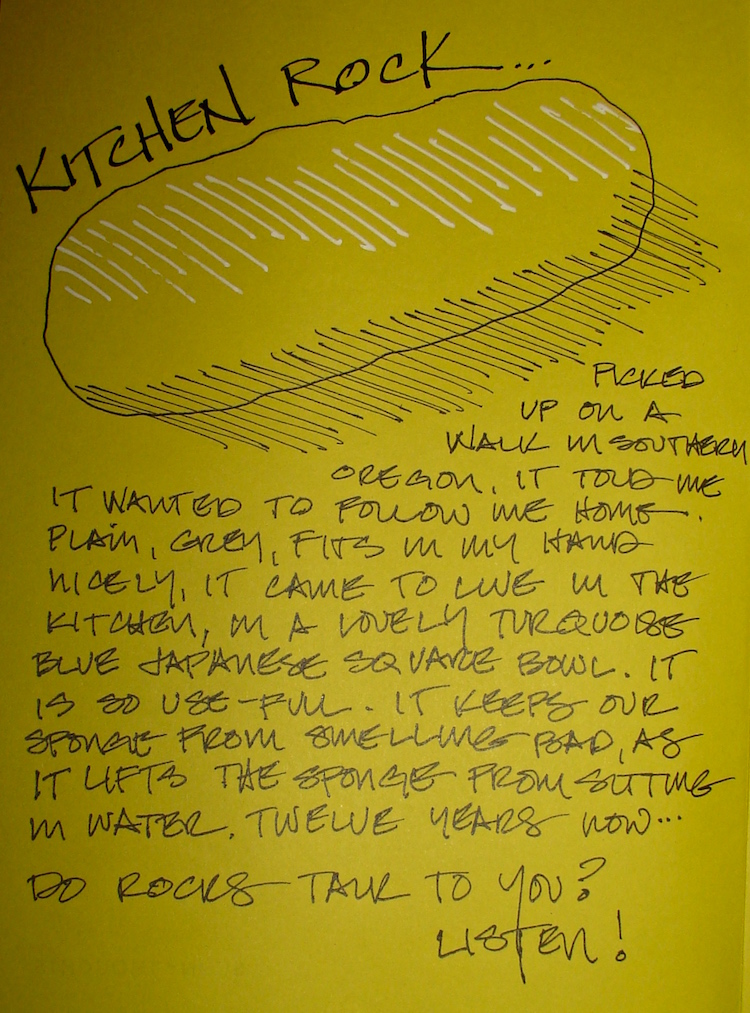 KITCHEN ROCK...
PICKED
UP ON A
WALK IN SOUTHERN
OREGON, IT TOLD ME
IT WANTED TO FOLLOW ME HOME.
PLAIN, GREY, FITS IN MY HAND
NICELY, IT CAME TO LIVE IN THE
KITCHEN, IN A LOVELY TURQUOISE
BLUE JAPANESE SQUARE BOWL. IT
IS SO USE-FULL. IT KEEPS OUR
SPONGE FROM SMELLING BAD, AS
IT LIFTS THE SPONGE FROM SITTING
IN WATER. TWELVE YEARS NOW...
DO ROCKS TALK TO YOU?
LISTEN!